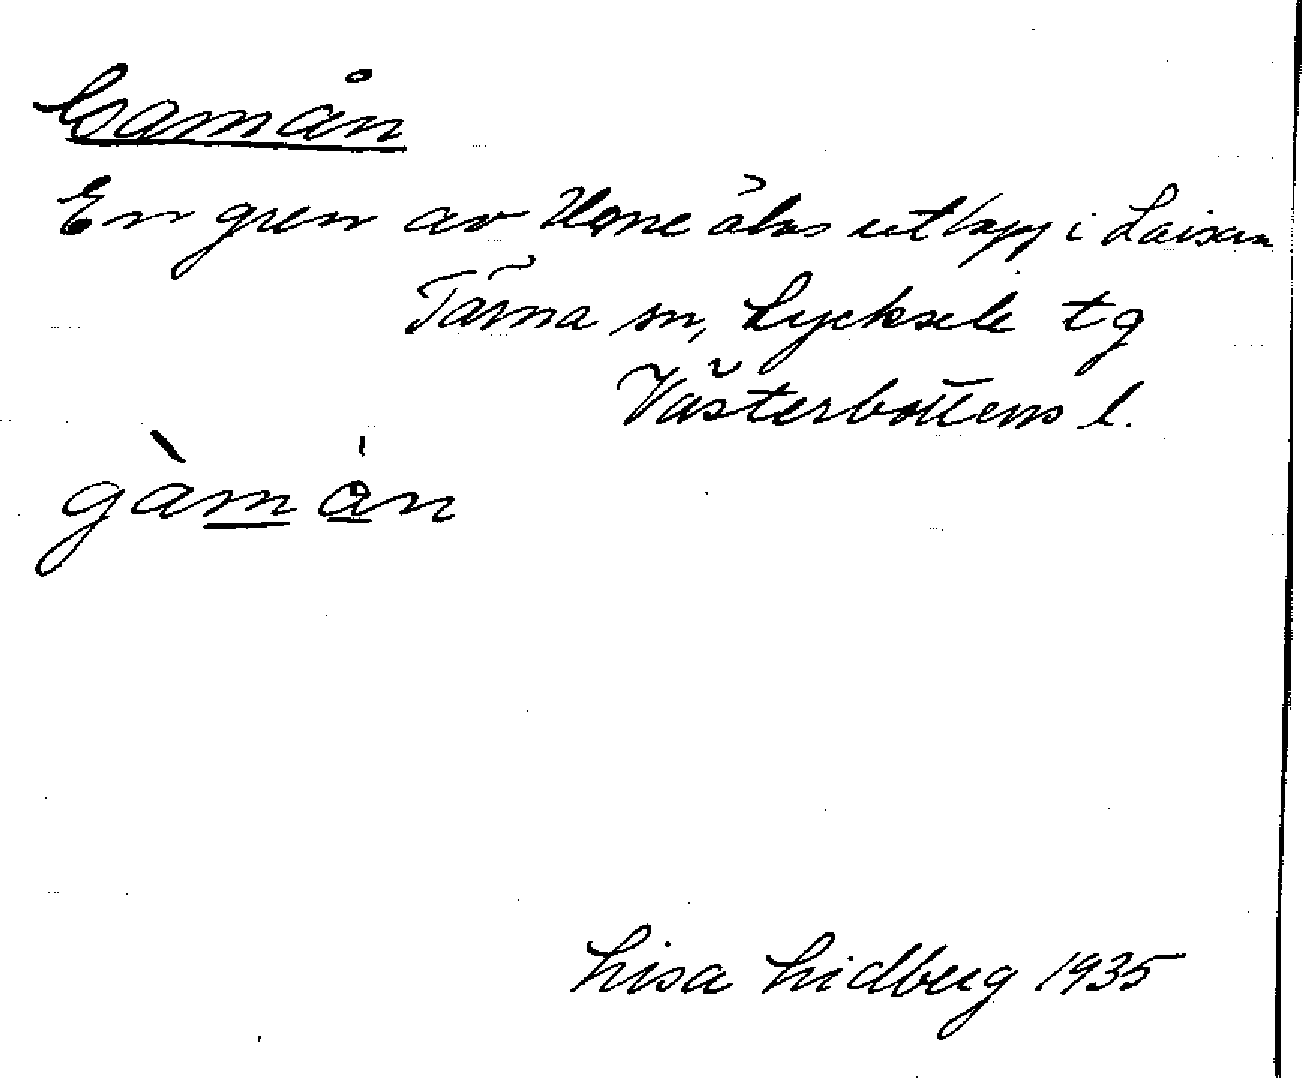 Gamån
En gren av älvs utlopp i Laisan
Tärna sn, Lycksele tg
Västerbottens l.
gàmån
Lisa Lidberg 1935